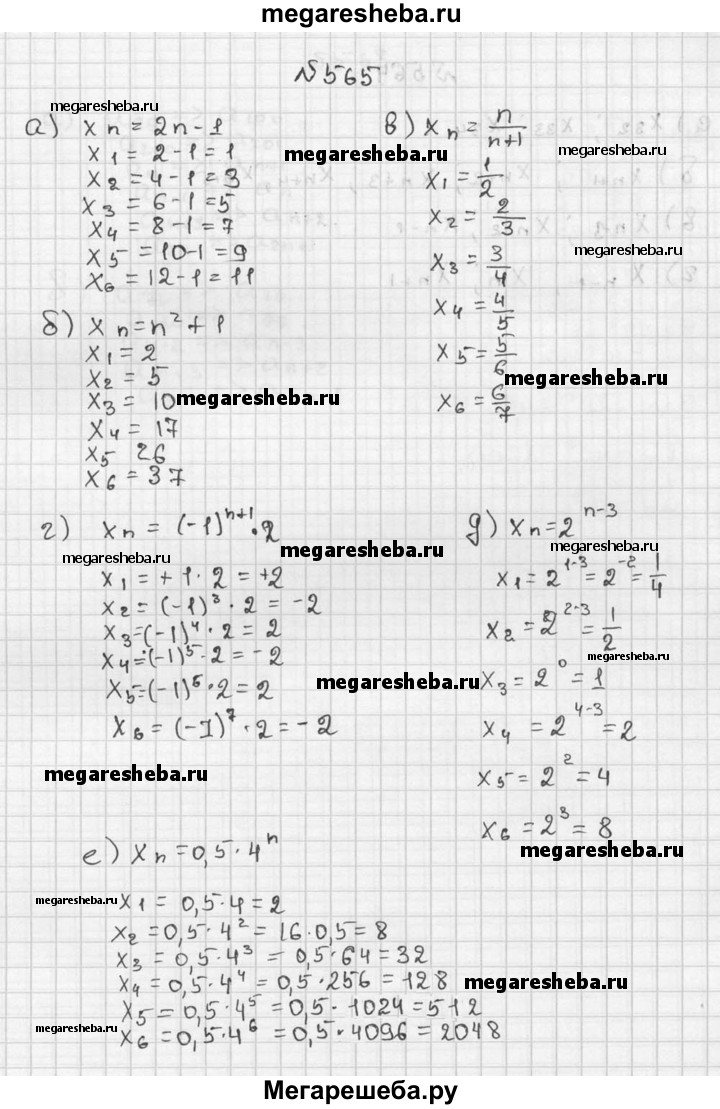 megaresheba.ru
№565
megaresheba.ru
а) xn = 2n-1
x1 = 2-1 = 1
x2 = 4-1 = 3
x3 = 6-1 = 5
x4 = 8-1 = 7
x5 = 10-1 = 9
x6 = 12-1 = 11
б) xn = n² + 1
x1 = 2
x2 = 5
x3 = 10
megaresheba.ru
x4 = 17
x5 26
x6 = 37
в) xn = n/n+1
megaresheba.ru
x1 = 1/2
x2 = 2/3
megaresheba.ru
x3 = 3/4
x4 = 4/5
x5 = 5/6
megaresheba.ru
x6 = 6/7
г) xn = (-1)^n+1 · 2
megaresheba.ru
megaresheba.ru
x1 = + 1 · 2 = +2
x2 = (-1)³ · 2 = -2
x3 = (-1)⁴ · 2 = 2
x4 = (-1)⁵ · 2 = -2
x5 = (-1)⁶ · 2 = 2
megaresheba.ru
x6 = (-1)⁷ · 2 = -2
megaresheba.ru
д) xn = 2^n-3
megaresheba.ru
x1 = 2^1-3 = 2^-2 = 1/4
x2 = 2^2-3 = 1/2
megaresheba.ru
x3 = 2⁰ = 1
x4 = 2^4-3 = 2
x5 = 2² = 4
x6 = 2³ = 8
megaresheba.ru
е) xn = 0,5 · 4^n
megaresheba.ru
x1 = 0,5 · 4 = 2
x2 = 0,5 · 4² = 16 · 0,5 = 8
x3 = 0,5 · 4³ = 0,5 · 64 = 32
x4 = 0,5 · 4⁴ = 0,5 · 256 = 128
megaresheba.ru
x5 = 0,5 · 4⁵ = 0,5 · 1024 = 512
megaresheba.ru
x6 = 0,5 · 4⁶ = 0,5 · 4096 = 2048
Мегарешеба.ру